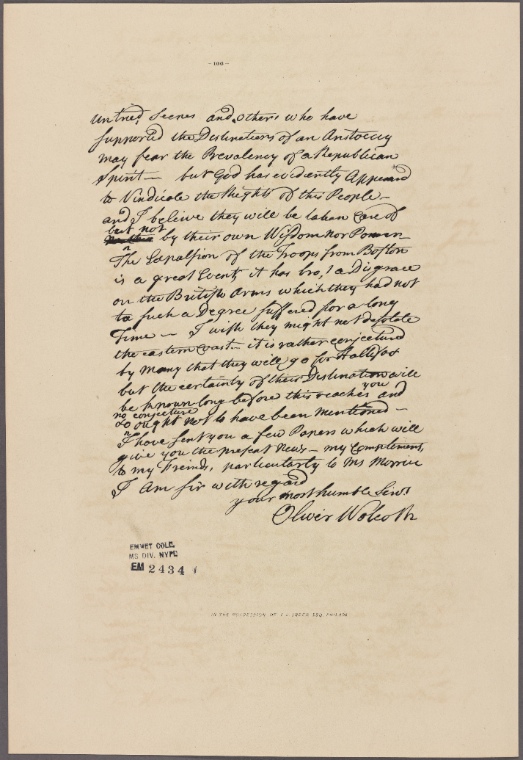 - 100 -
untried Scenes and others who have
supported the Destinations of an Aristocicy
may fear the Prevalency of a Republican
Spirit — but God has evidently Appeared
to Vindicate the Rights of this People —
and I believe they will be taken Care of
but not
by their own Wisdom nor Power
The Expulsion of the Troops from Boston
is a great Event, it has bro.t a Disgrace
on the British Arms which they had not
to such a Degree suffered for a long
Time — I wish they might not desolate
the eastern Coast — it is rather conjectured
by many that they will go for Hallifax
but the certainty of their Destination will
you
be known long before this reaches and
no conjecture
ought not to have been mentioned —
I have sent you a few Papers which will
give you the present News — my Complements
to my Friends, particularly to Mr
I am sir with regard
your most humble Serv.t
Oliver Wolcott
EMMET COLL.
MS DIV. NYPL
EM 2434
IN THE POSSESSION OF